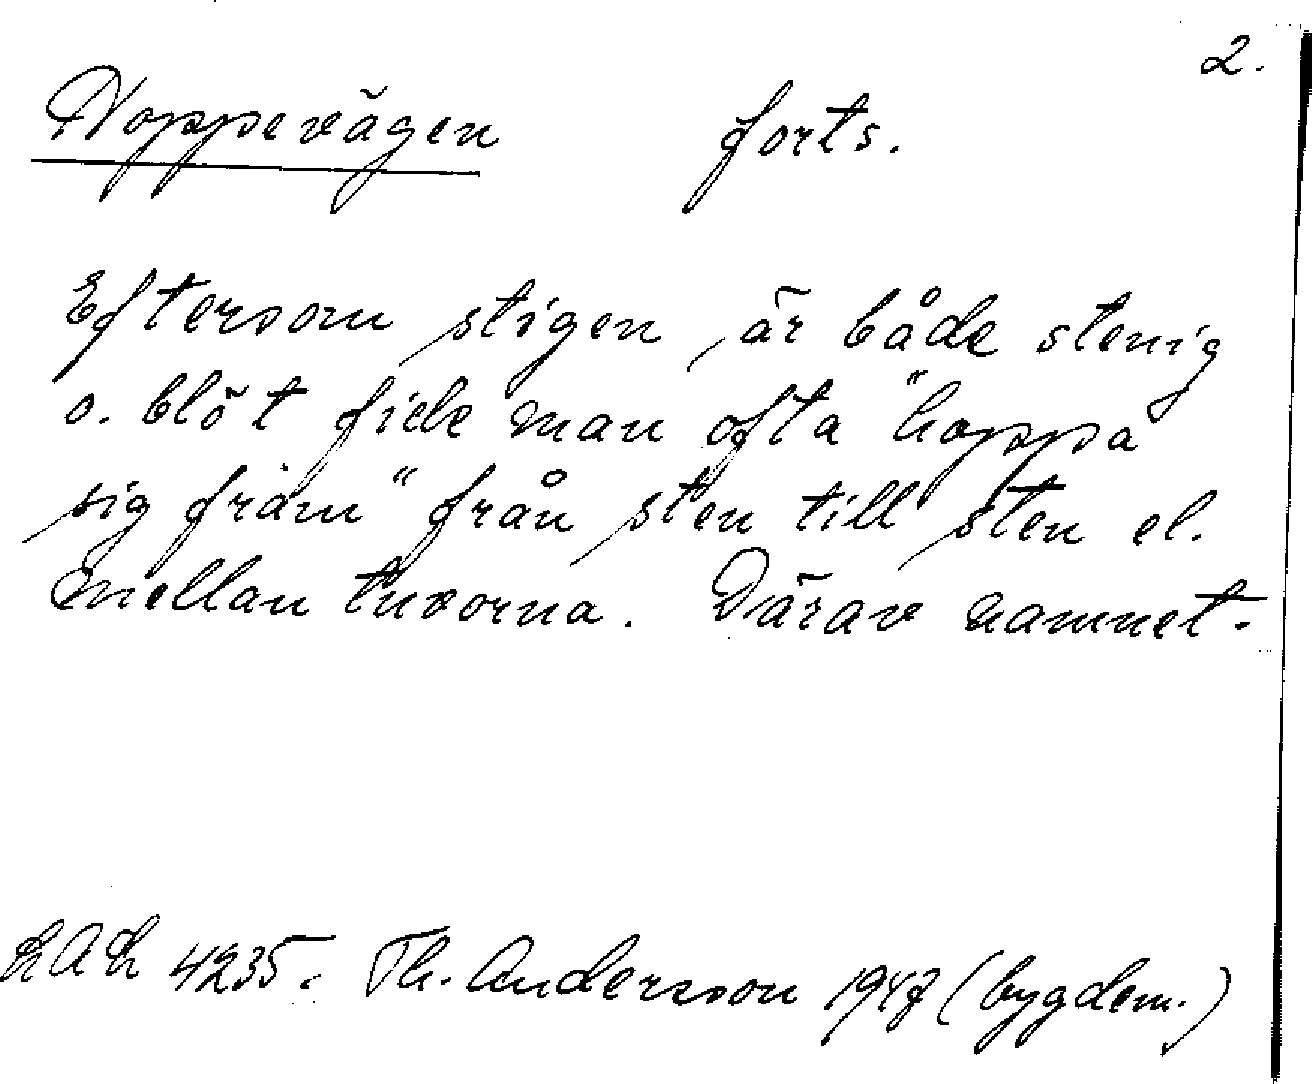 2.
Hoppevägen forts.
Eftersom stigen är både stenig
o. blöt fick man ofta "hoppa
sig fram" från sten till sten el.
mellan tuvorna. Därav namnet.
LAL 4235. Th. Andersson 1947 (bygdem.)